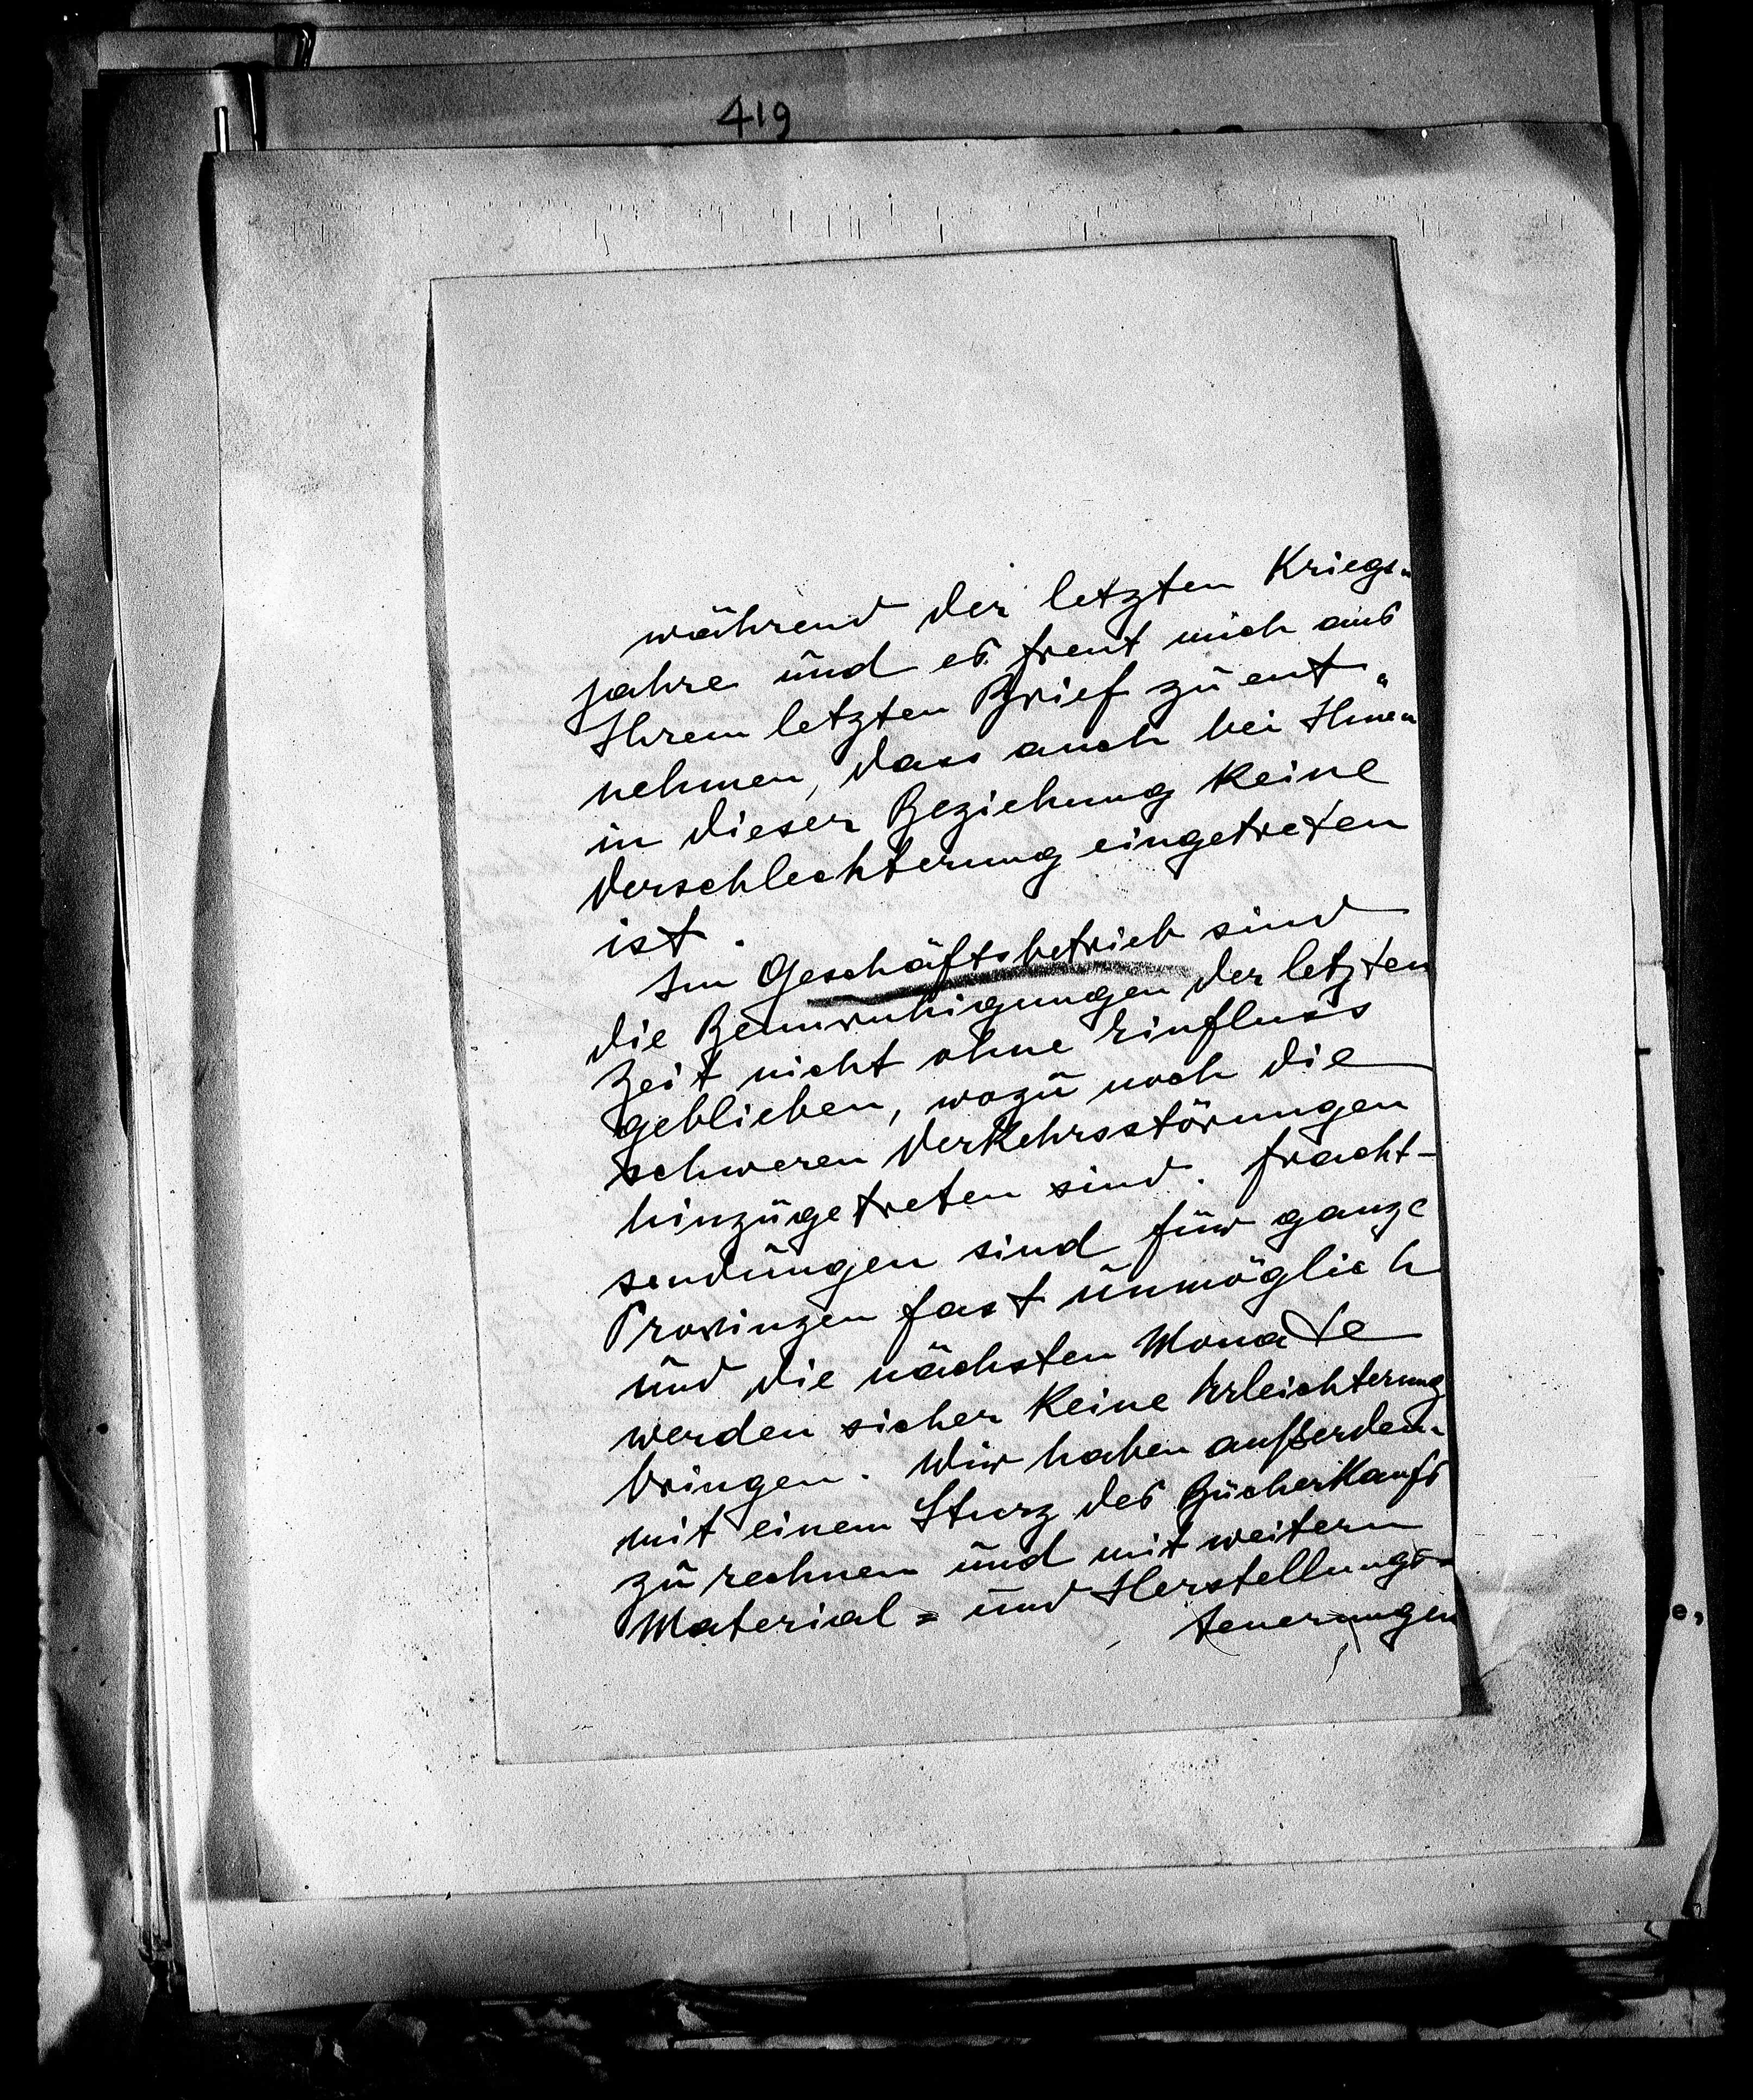 419
während der letzten Kriegs-
jahre und es freut mich aus
Ihrem letzten Brief zu ent-
nehmen, dass auch bei Ihnen
in dieser Beziehung keine
Verschlechterung eingetreten
ist.
Im Geschäftsbetrieb sind
die Beunruhigungen der letzten
Zeit nicht ohne Einfluss
geblieben, wozu noch die
schweren Verkehrsstörungen
hinzugetreten sind. Fracht-
sendungen sind für ganze
Provinzen fast unmöglich
und die nächsten Monate
werden sicher keine Erleichterung
bringen. Wir haben außerdem
mit einem Sturz des Bücherkaufs
zu rechnen und mit weitern
Material= und Herstellungs=
teuerungen